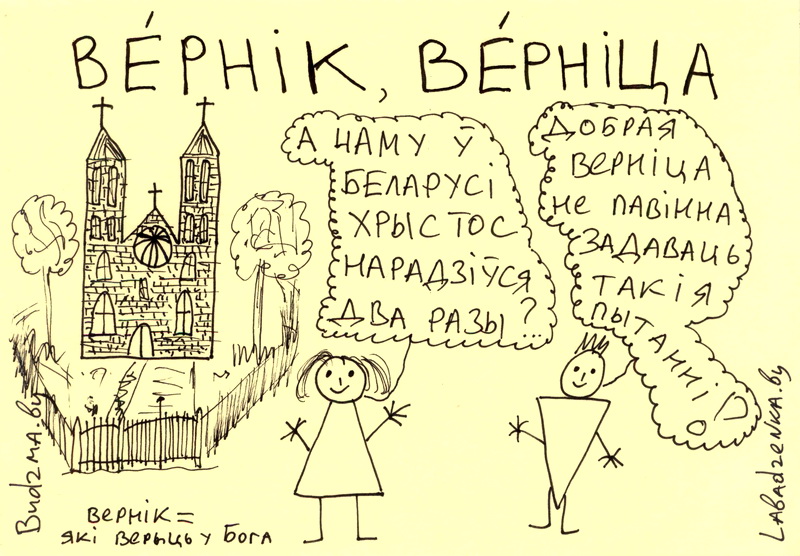 ВЕ́РНІК, ВЕ́РНІЦА
А ЧАМУ Ў
БЕЛАРУСІ
ХРЫСТОС
НАРАДЗІЎСЯ
ДВА РАЗЫ?...
ДОБРАЯ
ВЕРНІЦА
НЕ ПАВІННА
ЗАДАВАЦЬ
ТАКІЯ
ПЫТАННІ
Budzma.by
Labadzenka.by
ВЕРНІК =
ЯКІ ВЕРЫЦЬ У БОГА